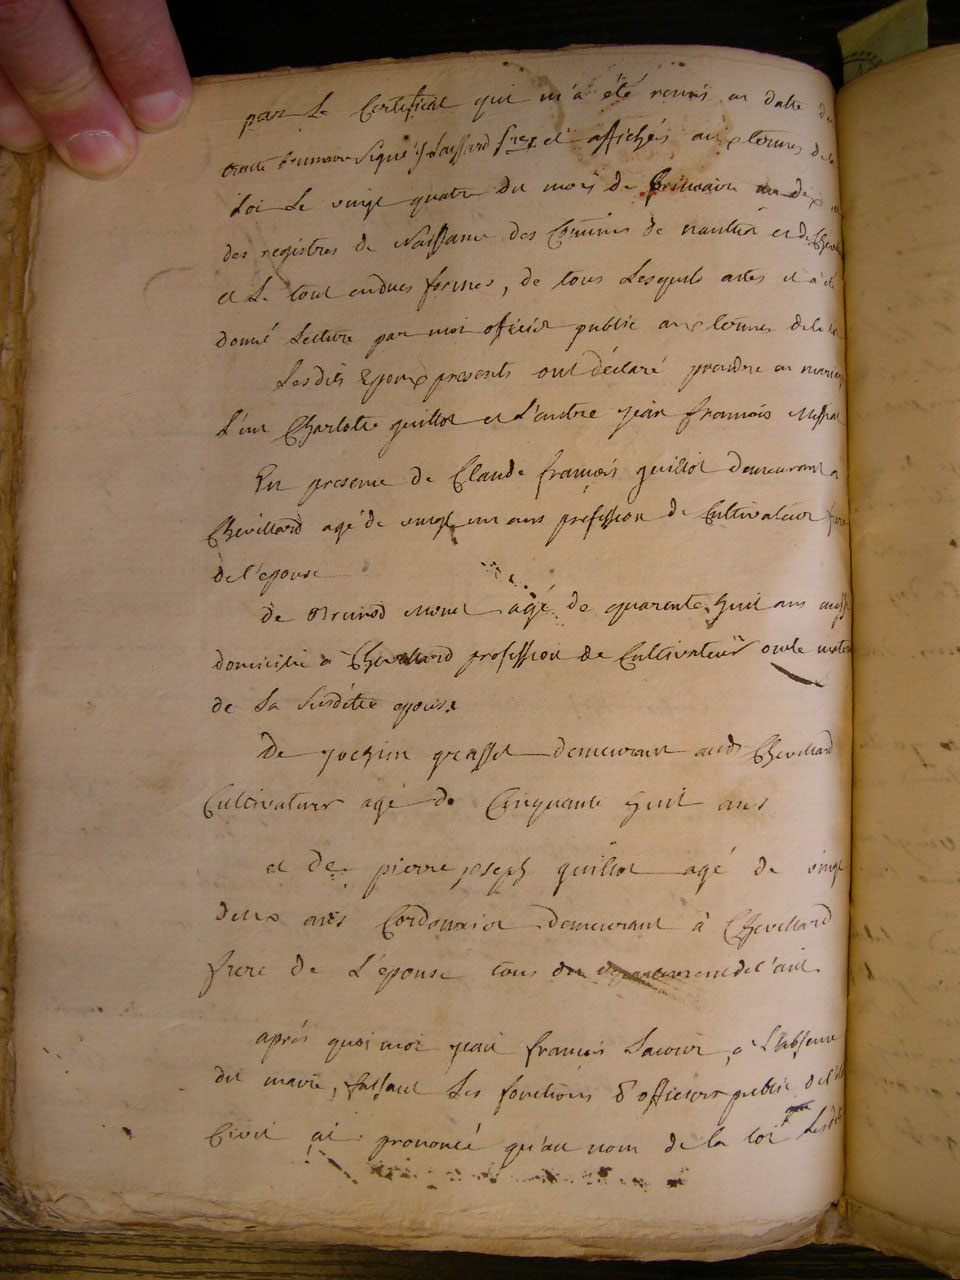 par Le Certificat qui m'a été remis en datte du
trente brumaire Signé affichés aux termes de la
Loi Le vingt quatre du mois de frimaire an dix
des registres de Naissance des Comunes de nantua et de Chevi
et Le tout endues formes, de tous Lesquels actes il a été
donné Lecture par moi officier public aux termes de la loi
Lesdits Epoux presents ont déclaré prendre en mariage
L'un Charlotte guillot et L'autre jean francois
En presence de Claude francois guillot demeurant a
Chevillard agé de vingt un ans profession de Cultivateur frere
de l'epouse
de Brunod agé de quarante huit ans aussi
domicilié à Chevillard profession de Cultivateur oncle mater
de La Susditte epouse
De jochim grasset demeurant audt Chevillard
Cultivateur agé de Cinquante huit ans
et de pierre joseph guillot agé de vingt
deux ans Cordonnier demeurant à Chevillard
frere de L'epouse tous du departement de l'ain
aprés quoi moi jean francois Lacour, a L'absence
du maire, faisant Les fonctions d'officier public de l'état
Civil ai prononcé qu'au nom de la loi que Lesdits